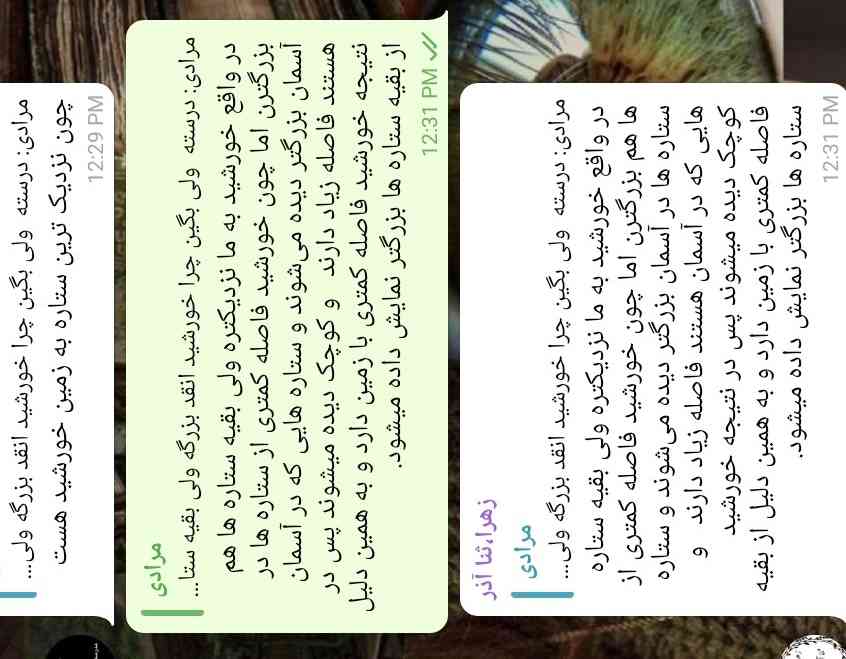 مرادی: درسته ولی بگین چرا خورشید انقد بزرگه ولی...
چون نزدیک ترین ستاره به زمین خورشید هست
12:29 PM
مرادی
مرادی: درسته ولی بگین چرا خورشید انقد بزرگه ولی بقیه ستا...
در واقع خورشید به ما نزدیکتره ولی بقیه ستاره ها هم
بزرگترن اما چون خورشید فاصله کمتری از ستاره ها در
آسمان بزرگتر دیده می‌شوند و ستاره هایی که در آسمان
هستند فاصله زیاد دارند و کوچک دیده میشوند پس در
نتیجه خورشید فاصله کمتری با زمین دارد و به همین دلیل
از بقیه ستاره ها بزرگتر نمایش داده میشود.
12:31 PM
زهرا،ثنا آذر
مرادی
مرادی: درسته ولی بگین چرا خورشید انقد بزرگه ولی...
در واقع خورشید به ما نزدیکتره ولی بقیه ستاره
ها هم بزرگترن اما چون خورشید فاصله کمتری از
ستاره ها در آسمان بزرگتر دیده می‌شوند و ستاره
هایی که در آسمان هستند فاصله زیاد دارند و
کوچک دیده میشوند پس در نتیجه خورشید
فاصله کمتری با زمین دارد و به همین دلیل از بقیه
ستاره ها بزرگتر نمایش داده میشود.
12:31 PM